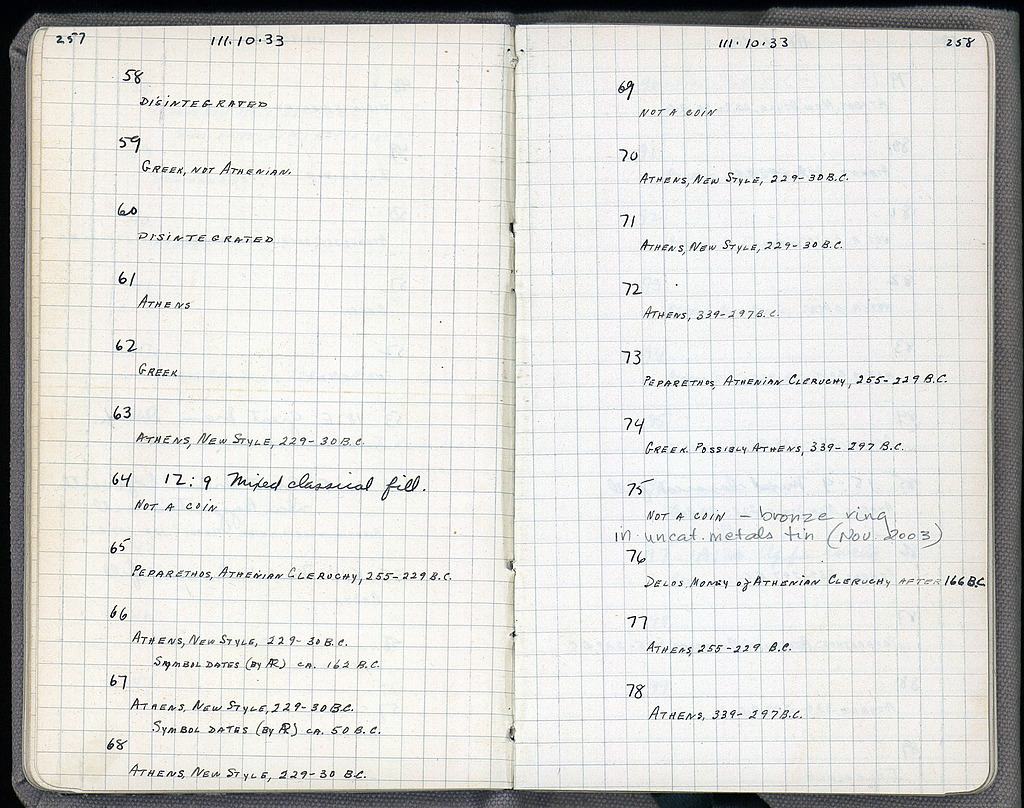 257
111.10.33
58
DISINTEGRATED
59
GREEK, NOT ATHENIAN.
60
DISINTEGRATED
61
ATHENS
62
GREEK
63
ATHENS, NEW STYLE, 229-30 B.C.
64 12:9 Mixed classical fill.
NOT A COIN
65
PEPARETHOS, ATHENIAN CLERUCHY, 255-229 B.C.
66
ATHENS, NEW STYLE, 229-30 B.C.
SYMBOL DATES (BY Æ) CA. 162 B.C.
67
ATHENS, NEW STYLE, 229-30 B.C.
SYMBOL DATES (BY Æ) CA. 50 B.C.
68
ATHENS, NEW STYLE, 229-30 BC.
111.10.33
258
69
NOT A COIN
70
ATHENS, NEW STYLE, 229-30 B.C.
71
ATHENS, NEW STYLE, 229-30 B.C.
72
ATHENS, 339-297 B.C.
73
PEPARETHOS, ATHENIAN CLERUCHY, 255-229 B.C.
74
GREEK. POSSIBLY ATHENS, 339-297 B.C.
75
NOT A COIN – bronze ring
in uncat. metals tin (Nov. 2003)
76
DELOS, MONEY of ATHENIAN CLERUCHY AFTER 166 B.C.
77
ATHENS, 255-229 B.C.
78
ATHENS, 339-297 B.C.